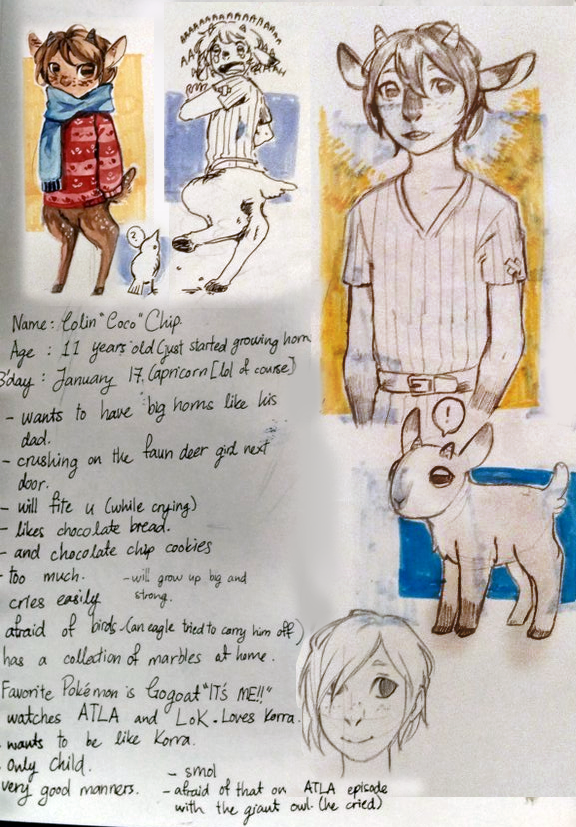 AAAAH
AAAAAAH
?
!
Name : Colin "Coco" Chip.
Age : 11 years old (just started growing horn
B'day : January 17, Capricorn [lol of course]
- wants to have big horns like his
dad.
- crushing on the faun deer girl next
door.
- will fite u (while crying)
- likes chocolate bread.
- and chocolate chip cookies
- too much.
- will grow up big and
strong.
cries easily
afraid of birds (an eagle tried to carry him off)
has a collection of marbles at home.
Favorite Pokémon is Gogoat "IT'S ME!!"
watches ATLA and LoK. Loves Korra.
wants to be like Korra.
Only child.
very good manners.
- smol
- afraid of that on ATLA episode
with the giant owl. (he cried)